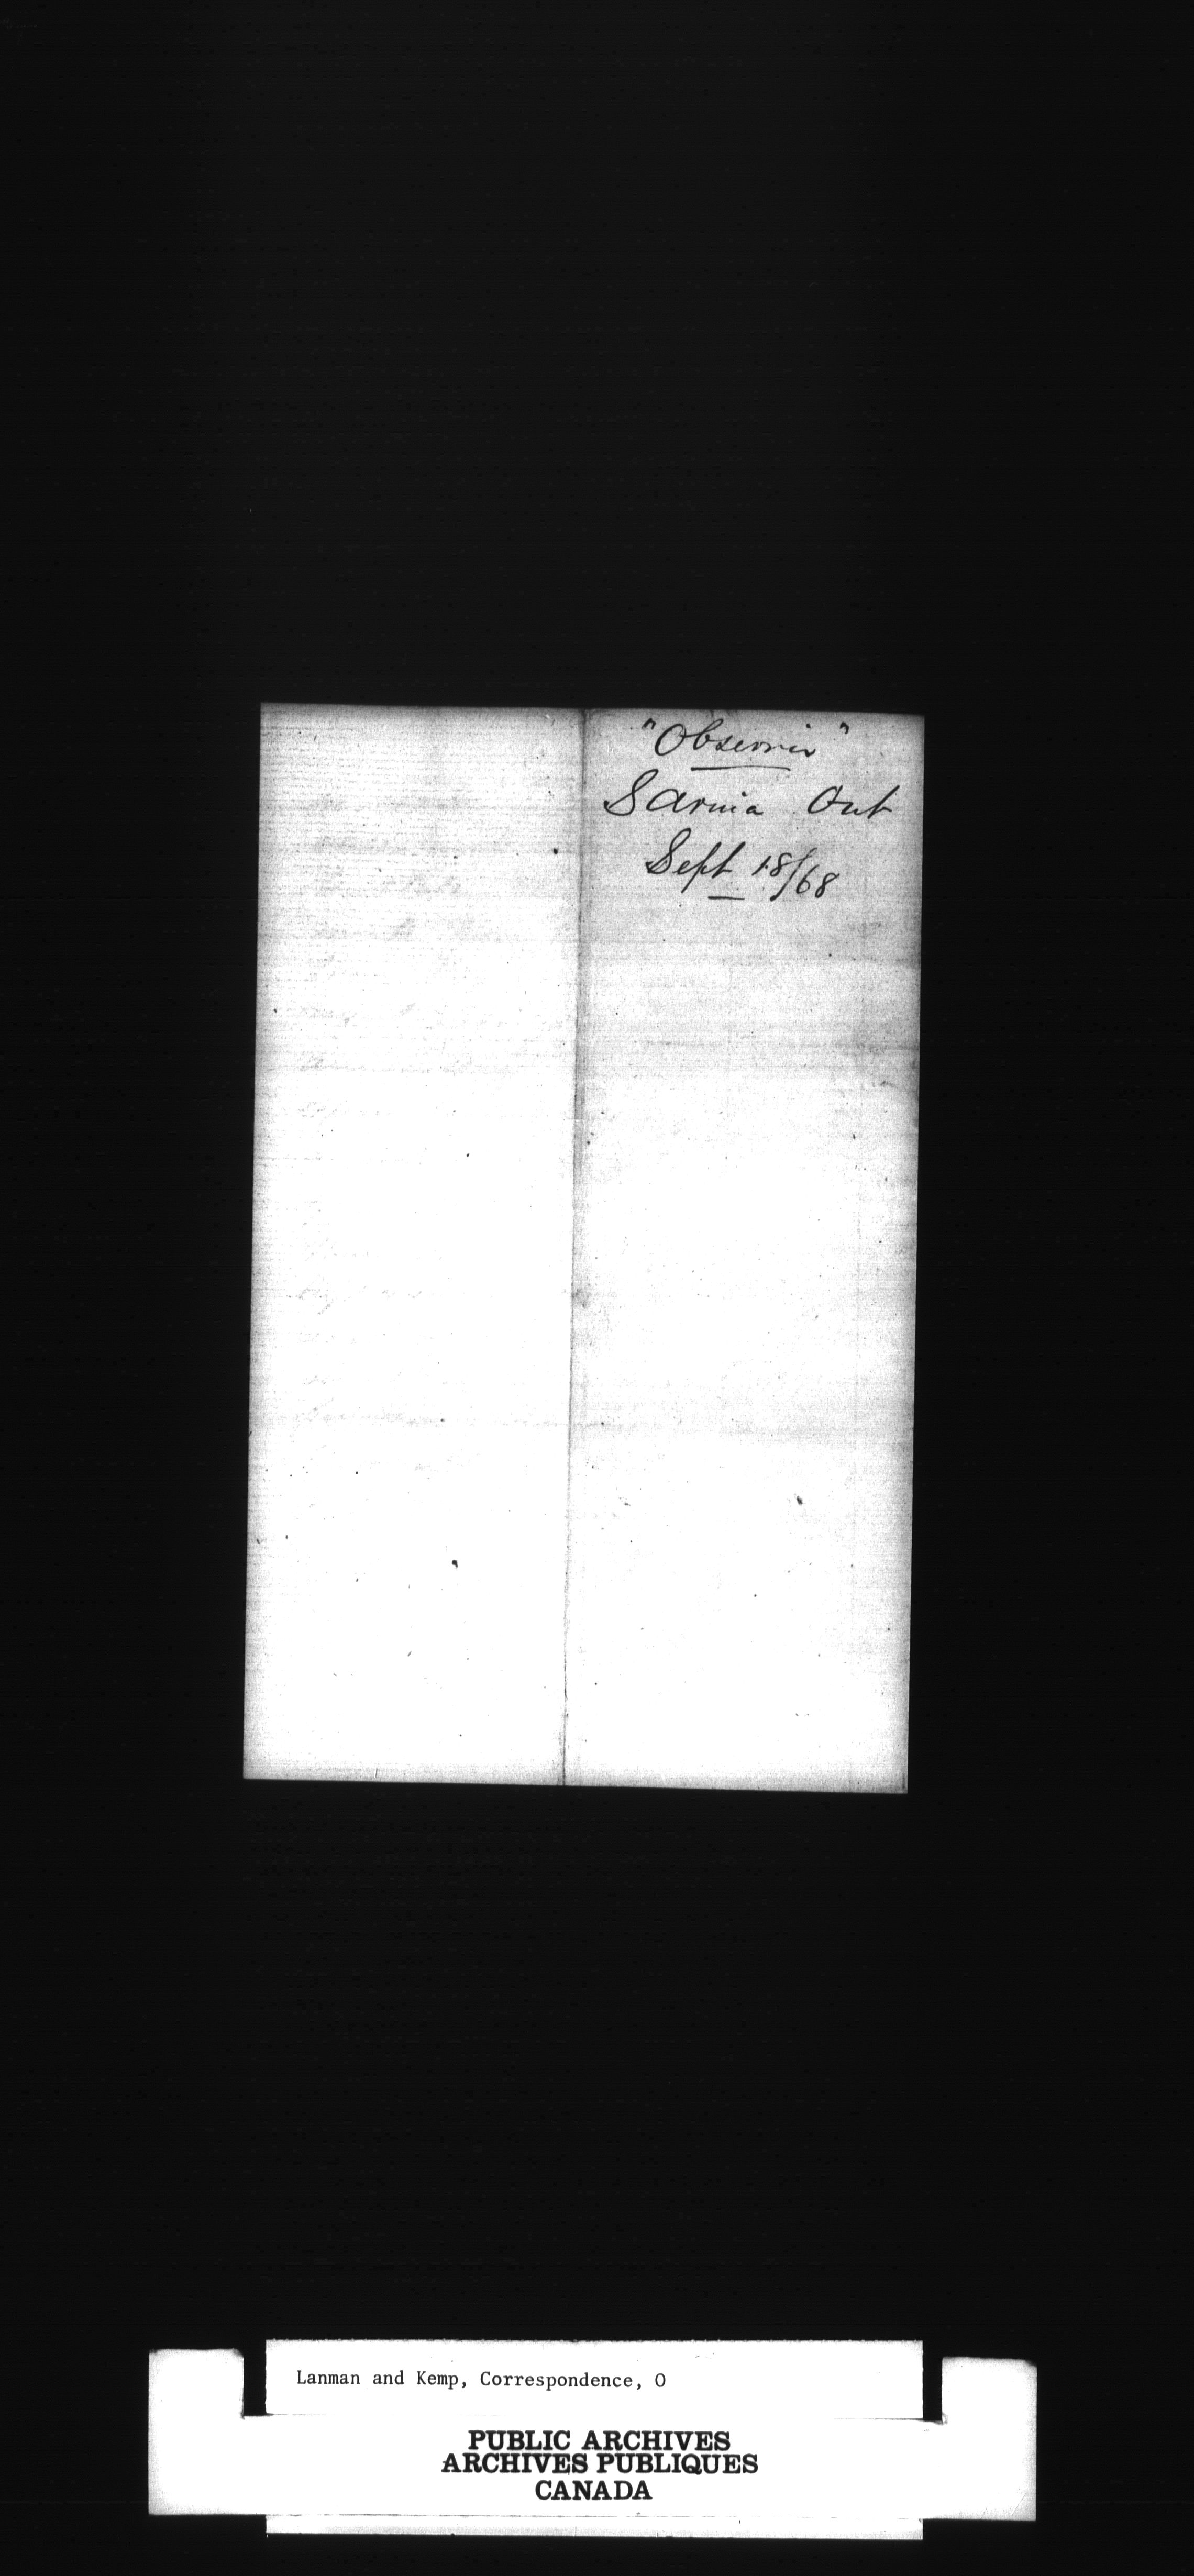 "Observer"
Sarnia Ont
Sept 18/68
Lanman and Kemp, Correspondence, O
PUBLIC ARCHIVES
ARCHIVES PUBLIQUES
CANADA